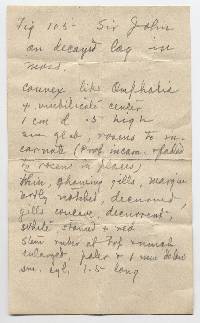 Fig 105 Sir John
on decayed log in
moss.
convex like Omphalia
& umbilicate center
1 cm d .5 high
sm glab, rosens to in-
carnate (Prof incarn. + faded
to rosens in places)
thin, gleaming gills, margin
 notched, decurved,
gills concave, decurrent,
white stained red
stem at top
enlarged paler & 1 mm below
sm. cyl, 1.5 long